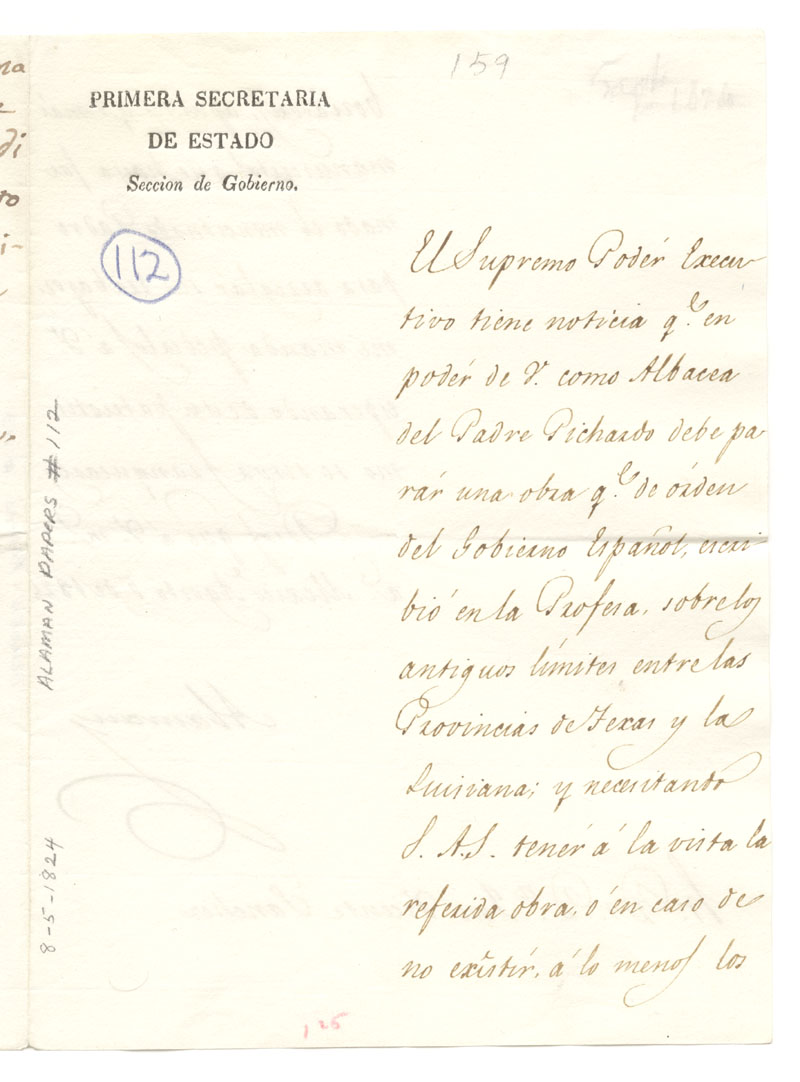 159
PRIMERA SECRETARIA
DE ESTADO
Seccion de Gobierno.
112
El Supremo Podér Execu-
tivo tiene noticia q.e en
podér de V. como Albacea
del Padre Pichardo debe pa-
rár una obra q.e de órden
del Gobierno Español, escri-
bió en la Profesa, sobre los
antiguos límites entre las
Provincias de Texas y la
Luisiana; y necesitando
S. A. S. tenér á la vista la
referida obra, ó en caso de
no existír, á lo menos los
ALAMAN PAPERS # 112
8-5-1824
,25
na
e
di
to
i-